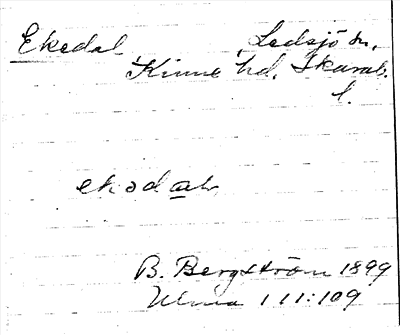 Ekedal Ledsjö sn,
Kinne hd, Skarab.
l.
ekədaɩ
B. Bergström 1899
111:109